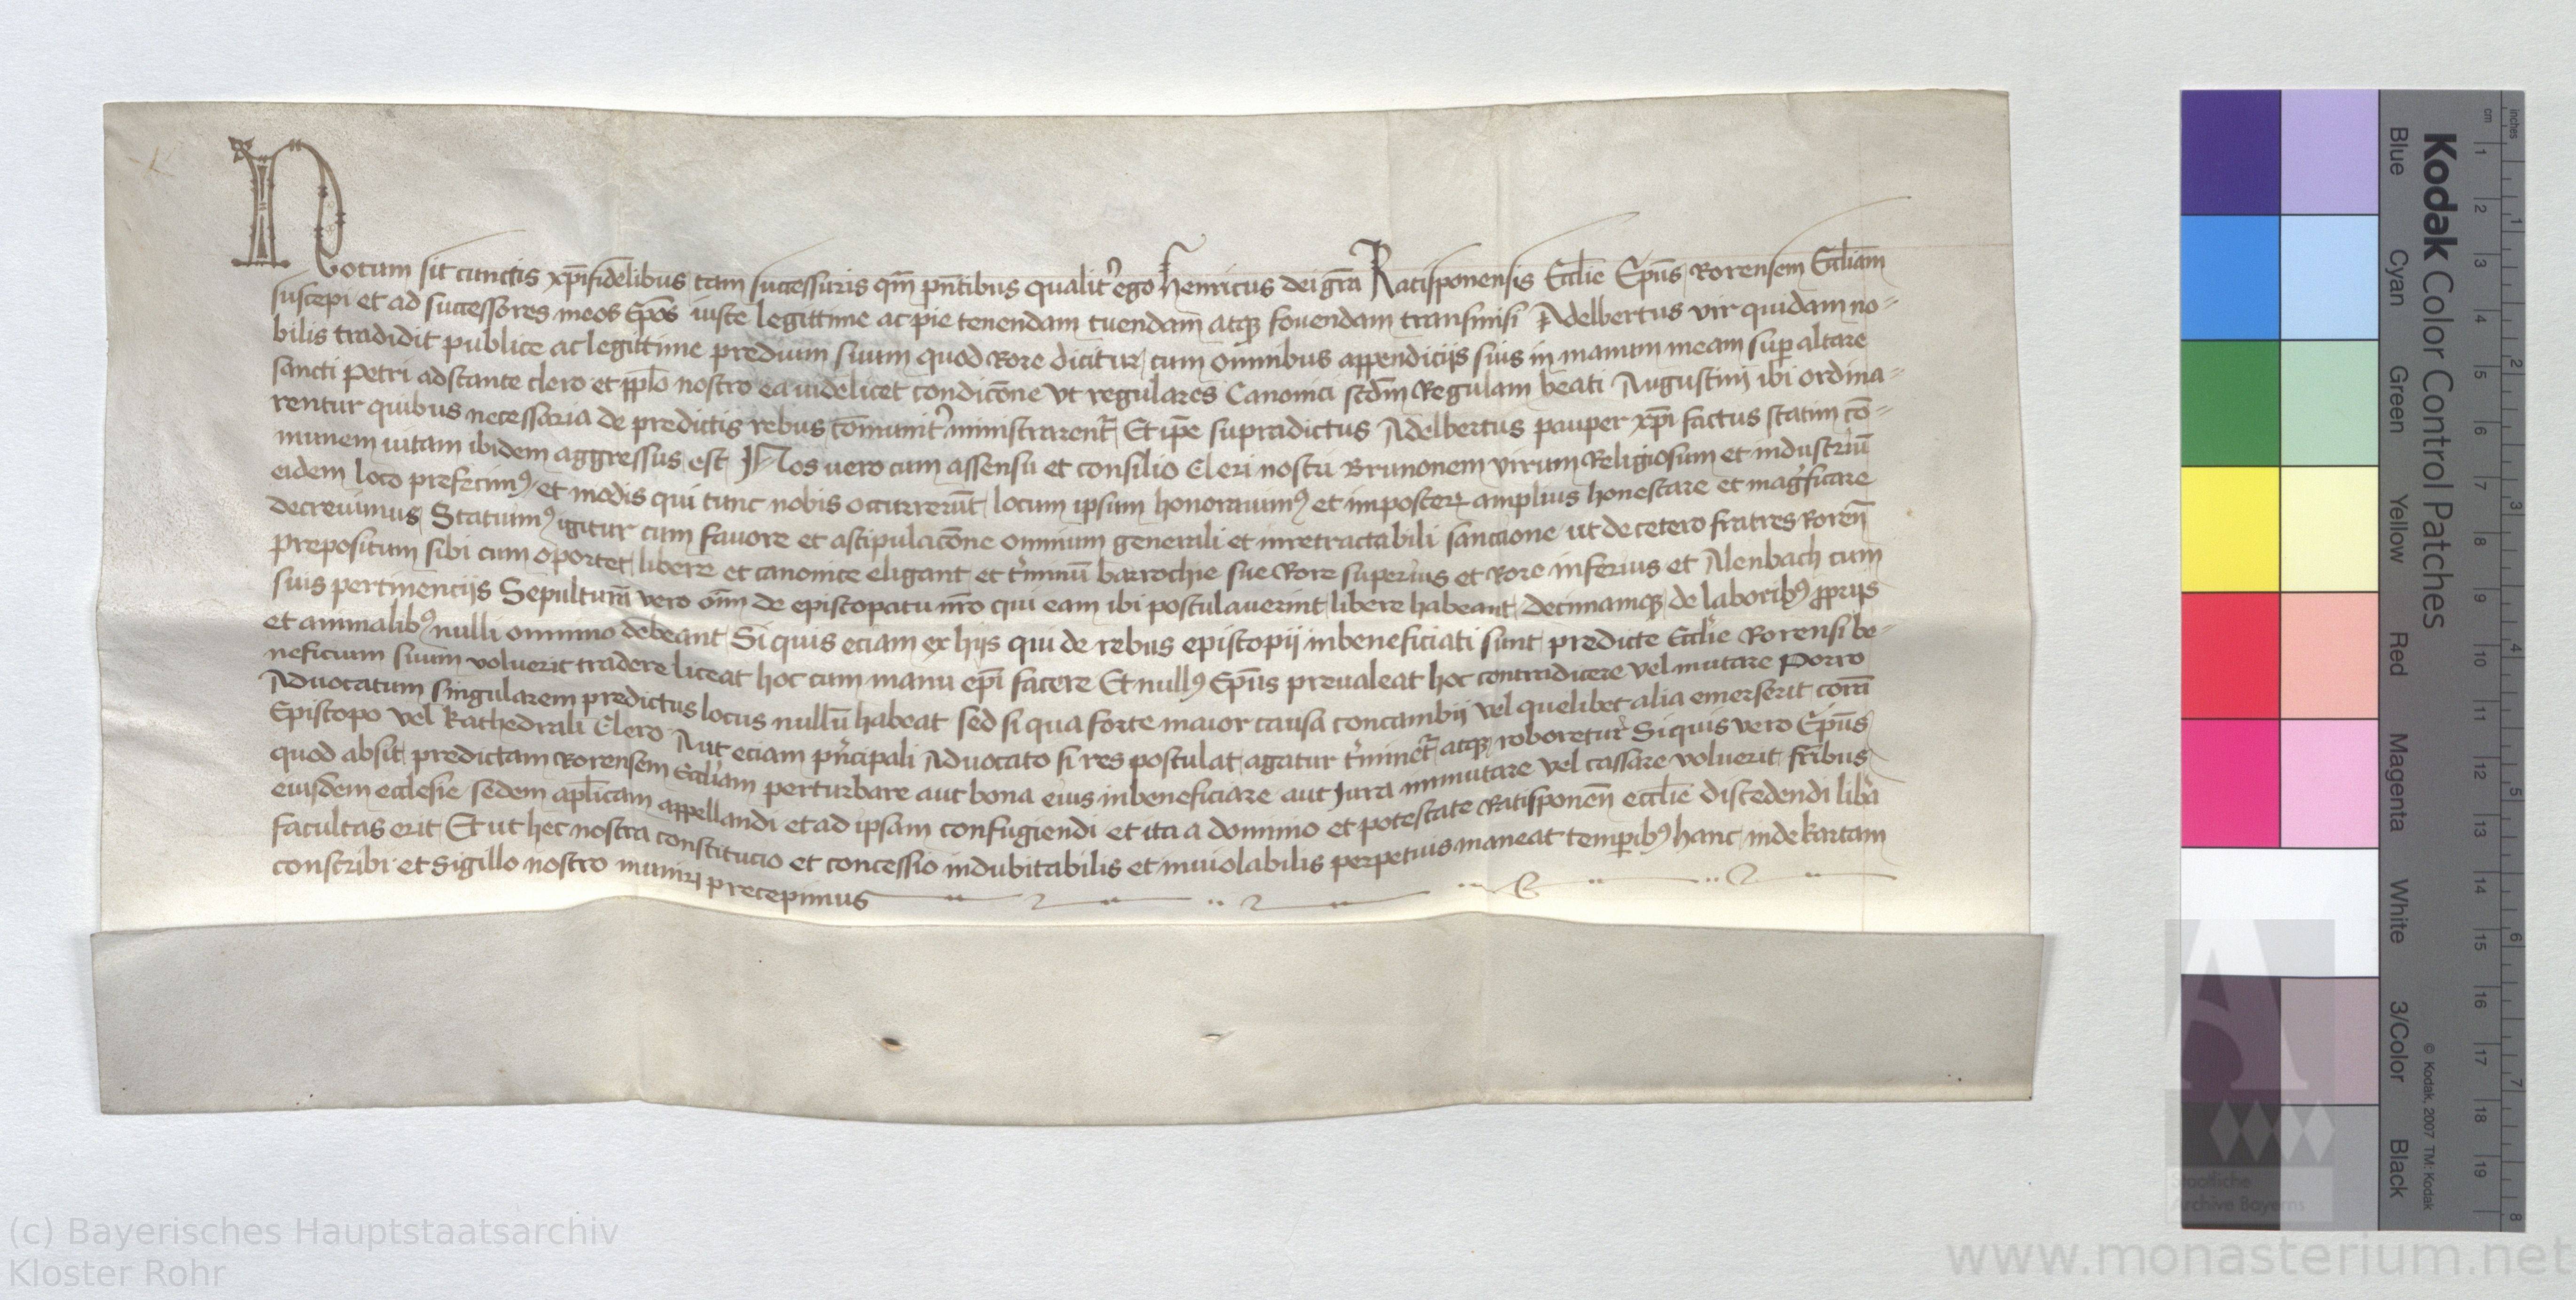 Notum sit cunctis xp̄ifidelibus tam successuris qm̄ pn̄tibus qualit᷑ ego Henricus dei gr̄a Ratisponensis Eccl̄ie Ep̄us Rorensem Eccl̄iam
suscepi et ad successores meos Ep̄os iuste legittime ac pie tenendam tuendam atqꝫ fouendam transmisi Adelbertus vir quidam no-
bilis tradidit publice ac legittime predium suum quod Rore dicitur cum omnibus appendicijs suis in manum meam suꝑ altare
sancti Petri adstante clero et pp̄lo nostro ea uidelicet condicōne vt regulares Canonici scd̄m Regulam beati Augustini ibi ordina-
rentur quibus necessaria de predictis rebus cōmunit᷑ ministrarent᷑ Et ip̄e supradictus Adelbertus pauper xp̄i factus statim cō-
munem uitam ibidem aggressus est Nos uero cum assensu et consilio Cleri nostri Brunonem virum Religiosum et industriū
eidem loco prefecimꝰ et modis qui tunc nobis occurrerūt locum ipsum honorauimꝰ et imposteꝝ amplius honestare et mag᷑ficare
decreuimus Statuimꝰ igitur cum fauore et astipulacōne omnium generali et inretractabili sanccione ut de cetero fratres Roren̄
prepositum sibi cum oportet libere et canonice eligant et t᷑minū barrochie sue Rore superius et Rore inferius et Alenbach cum
suis pertinencijs Sepulturā vero om̄ de episcopatu nr̄o qui eam ibi postulauerint libere habeant decimamqꝫ de laboribꝰ ꝓprijs
et animalibꝰ nulli omnino debeant Si quis eciam ex hijs qui de rebus episcopij inbeneficiati sunt predicte Eccl̄ie Rorensi be-
neficium suum voluerit tradere liceat hoc cum manu ep̄i facere Et nullꝰ Ep̄us preualeat hoc contradicere vel mutare Porro
Aduocatum singularem predictus locus nullū habeat sed si qua forte maior causa concambij vel quelibet alia emerserit corā
Episcopo vel kathedrali Clero Aut eciam pn᷑cipali Aduocato si res postulat agatur t᷑minet᷑ atqꝫ roboretur Si quis vero Ep̄us
quod absit predictam Rorensem Eccl̄iam perturbare aut bona eius inbeneficiare aut Jura inmutare vel cassare voluerit fr̄ibus
eiusdem ecclesie sedem apl̄icam appellandi et ad ipsam confugiendi et ita a dominio et potestate Ratisponen̄ eccl̄ie discedendi lib᷑a
facultas erit Et ut hec nostra constitucio et concessio indubitabilis et inuiolabilis perpetuis maneat temꝑibꝰ hanc inde kartam
conscribi et Sigillo nostro muniri precepimus
Kodak Color Control Patches
Blue Cyan Green Yellow Red Magenta White 3/Color Black
© Kodak, 2007 TM: Kodak
cm 1 2 3 4 5 6 7 8 9 10 11 12 13 14 15 16 17 18 19
inches 1 2 3 4 5 6 7 8
Staatliche
Archive Bayerns
(c) Bayerisches Hauptstaatsarchiv
Kloster Rohr
www.monasterium.net